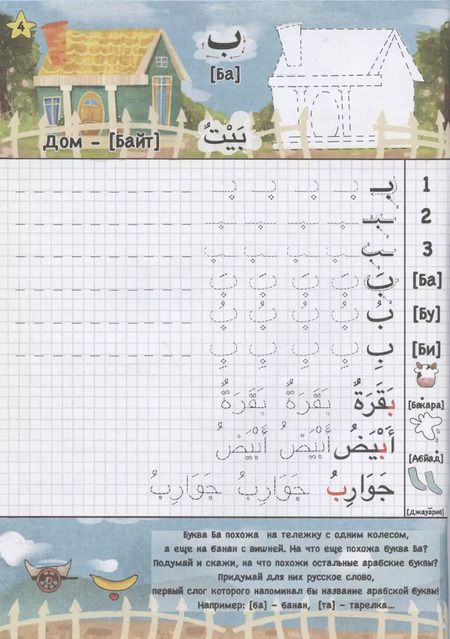 4
ب
[Ба]
Дом - [Байт]
بَيْتٌ
بـ 1
ـبـ 2
ـب 3
بَ [Ба]
بُ [Бу]
بِ [Би]
بَقَرَةٌ بَقَرَةٌ بَقَرَةٌ
[Бакара]
أَبْيَضُ أَبْيَضُ أَبْيَضُ
[Абйад]
جَوَارِبُ جَوَارِبُ جَوَارِبُ
[Джауариб]
Буква Ба похожа на тележку с одним колесом,
а еще на банан с вишней. На что еще похожа буква Ба?
Подумай и скажи, на что похожи остальные арабские буквы?
Придумай для них русское слово,
первый слог которого напоминал бы название арабской буквы!
Например: [ба] - банан, [та] - тарелка...